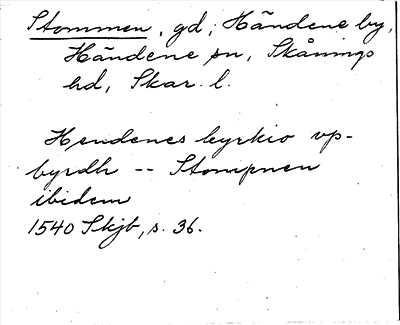 Stommen, gd, Händene by,
Händene sn, Skånings
hd, Skar. l.
Hendenes kyrkio vp-
byrdh -- Stompnen
ibidem
1540 Skjb, s. 36.